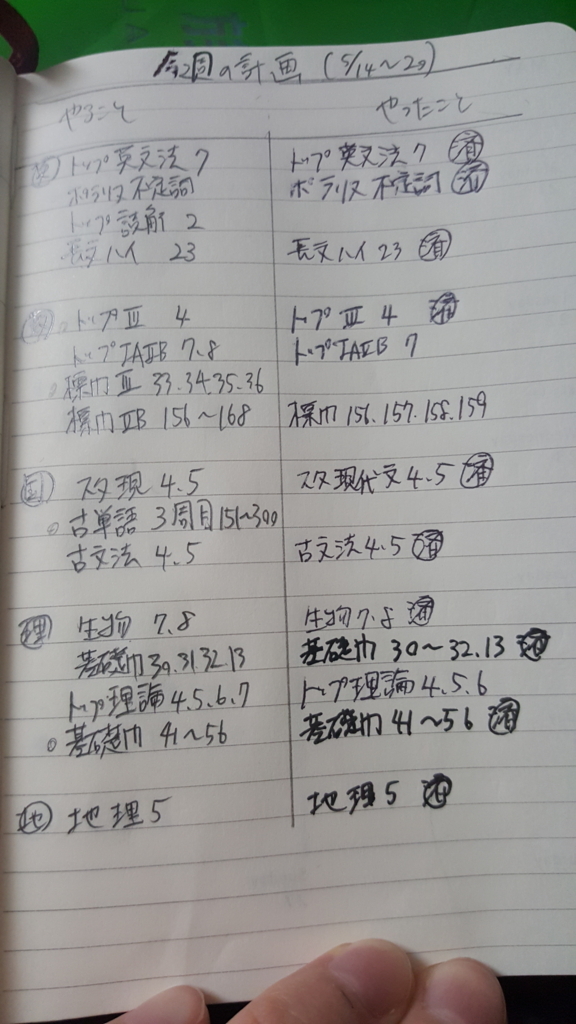 第2週の計画 (5/14～20)
やること やったこと
英 トップ英文法 7 トップ 英文法 7 済
ポラリス 不定詞 ポラリス 不定詞 済
トップ 読解 2
長文ハイ 23 長文ハイ 23 済
数 トップⅢ 4 トップ Ⅲ 4 済
トップⅠAⅡB 7.8 トップⅠAⅡB 7
標門Ⅲ 33.34.35.36
標門ⅡB 156～168 標門 156.157.158.159
国 スタ現 4.5 スタ現代文 4.5 済
古単語 3周目 151～300
古文法 4.5 古文法 4.5 済
理 生物 7.8 生物 7.8 済
基礎門 30.31.32.13 基礎門 30～32.13 済
トップ理論 4.5.6.7 トップ理論 4.5.6
基礎門 41～56 基礎門 41～56 済
地 地理 5 地理 5 済